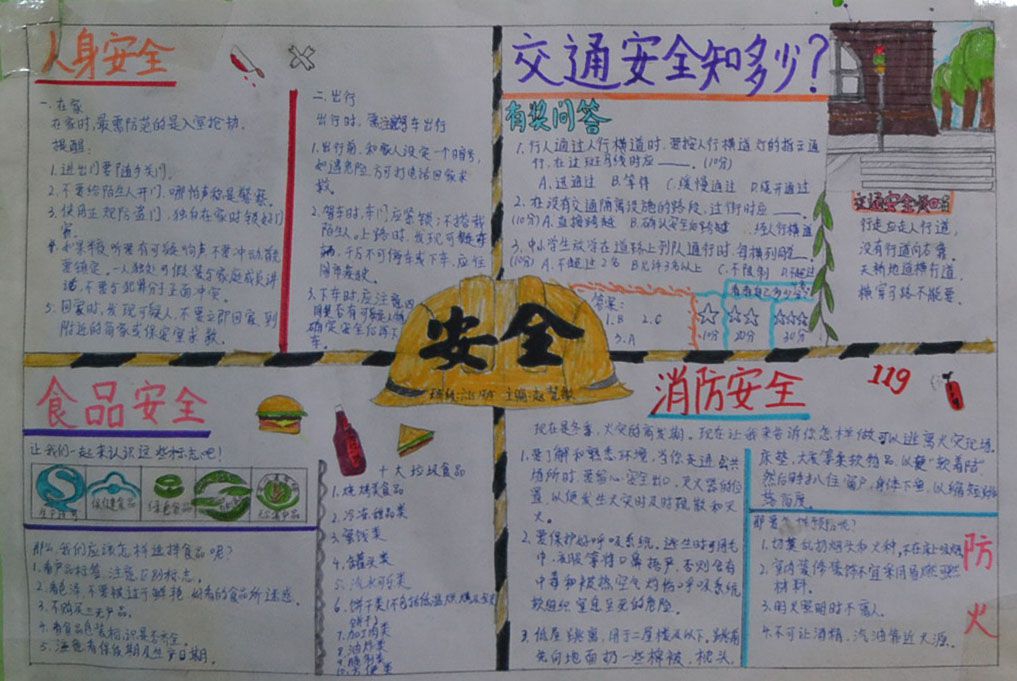 人身安全
一.在家
在家时,最需防范的是入室抢劫.
提醒:
1.进出门要随手关门.
2.不要给陌生人开门,哪怕声称是警察.
3.使用正规防盗门,独自在家时锁好门
窗.
4.如果夜里听到有可疑响声不要冲动,首先
要镇定.一人独处可假装与家庭成员讲
话,不要与犯罪分子正面冲突.
5.回家时,发现可疑人,不要立即回家,到
附近的商家或保安室求救.
二.出行
出行时,需注意乘车出行
1.出行前,和家人设定一个暗号,
如遇危险,方可打电话回家求
救.
2.驾车时,车门应紧锁;不搭载
陌生人.上路时,发现可疑车
辆,千万不可停车或下车,应往
闹市
3.下车时,应注意四
周是否有可疑人物
确定安全后再下
车.
交通安全知多少?
有奖问答
1.行人通过人行横道时,要按人行横道灯的指示通
行,在过斑马线时应____.(10分)
A.迅速通过 B.等待 C.缓慢通过 D.跑开通过
2.在没有交通隔离设施的路段,过街时应____.
(10分) A.直接跨越 B.确认安全后跨越 C.绕人行横道
3.中小学生放学在道路上列队通行时,每横列
(10分) A.不超过2名 B.允许3名以上 C.不限制 D.不超过
答案:
1.B 2.C
3.A
看看自己多少分?
10分 20分 30分
交通安全
行走应走人行道,
没有行道向右靠.
天桥地道横行道,
横穿马路不能要.
安全
食品安全
让我们一起来认识这些标志吧!
保健食品
绿色食品
那么,我们应该怎样选择食品呢?
1.看产品标签,注意区别标志.
2.看色泽,不要被过于鲜艳、好看的食品所迷惑.
3.不购买三无产品.
4.看食品包装标识是否齐全.
5.注意看保质期及生产日期.
十大垃圾食品
1.烧烤类食品
2.冷冻甜品类
3.蜜饯类
4.罐头类
5.汽水可乐类
6.饼干类(不包括低温烘烤及全麦
饼干)
7.加工肉类
8.油炸类
9.腌制类
10.方便类
消防安全
119
现在是冬季,火灾的高发期.现在让我来告诉你怎样做可以逃离火灾现场.
1.要了解和熟悉环境,当你走进公共
场所时,要留心安全出口、灭火器的位
置,以便发生火灾时及时疏散和灭
火.
2.要保护好呼吸系统,逃生时可用毛
巾、衣服等将口鼻掩严,否则会有
中毒和被热空气灼伤呼吸系统
软组织窒息至死的危险.
3.低层跳离,用于二层楼及以下.跳前
先向地面扔一些棉被、枕头、
床垫、大衣等柔软物品,以便“软着陆”
然后用手扒住窗户,身体下垂,以缩短
落高度.
那要怎样预防呢?
1.切莫乱扔烟头和火种,不在床上吸烟.
2.室内装修装饰不宜采用易燃
材料.
3.明火照明时不离人.
4.不可让酒精、汽油靠近火源.
防火